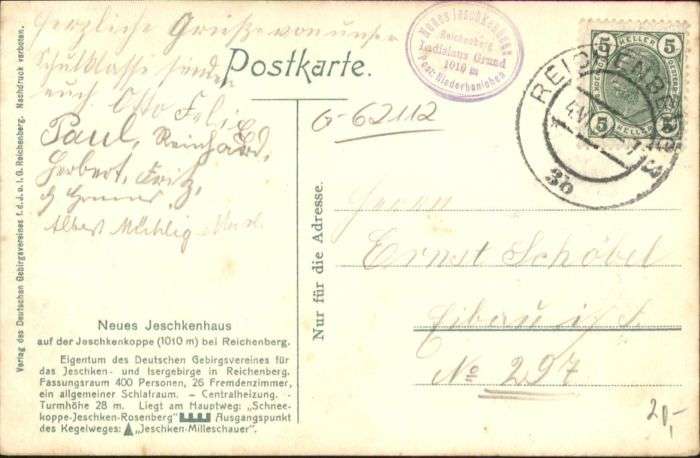 Herzliche Grüße von unser
Schulklasse senden
euch Otto Felix
Paul, Reinhard,
Herbert, Fritz,
Albert Mühlig
Postkarte.
G-62112
Neues Jeschkenhaus
Reichenberg
Ladislaus Grund
1010 m
Post Niederhanichen
5 HELLER 5
5 HELLER 5
REICHENBERG
3b
Herrn
Ernst Schöbel
Eibau i/S.
No 297
20,-
Nur für die Adresse.
Verlag des Deutschen Gebirgsvereines f. d. J. u. I. G. Reichenberg. Nachdruck verboten.
Neues Jeschkenhaus
auf der Jeschkenkoppe (1010 m) bei Reichenberg.
Eigentum des Deutschen Gebirgsvereines für
das Jeschken- und Isergebirge in Reichenberg.
Fassungsraum 400 Personen, 26 Fremdenzimmer,
ein allgemeiner Schlafraum. – Centralheizung. –
Turmhöhe 28 m. Liegt am Hauptweg: „Schnee-
koppe-Jeschken-Rosenberg" Ausgangspunkt
des Kegelweges: „Jeschken-Milleschauer".